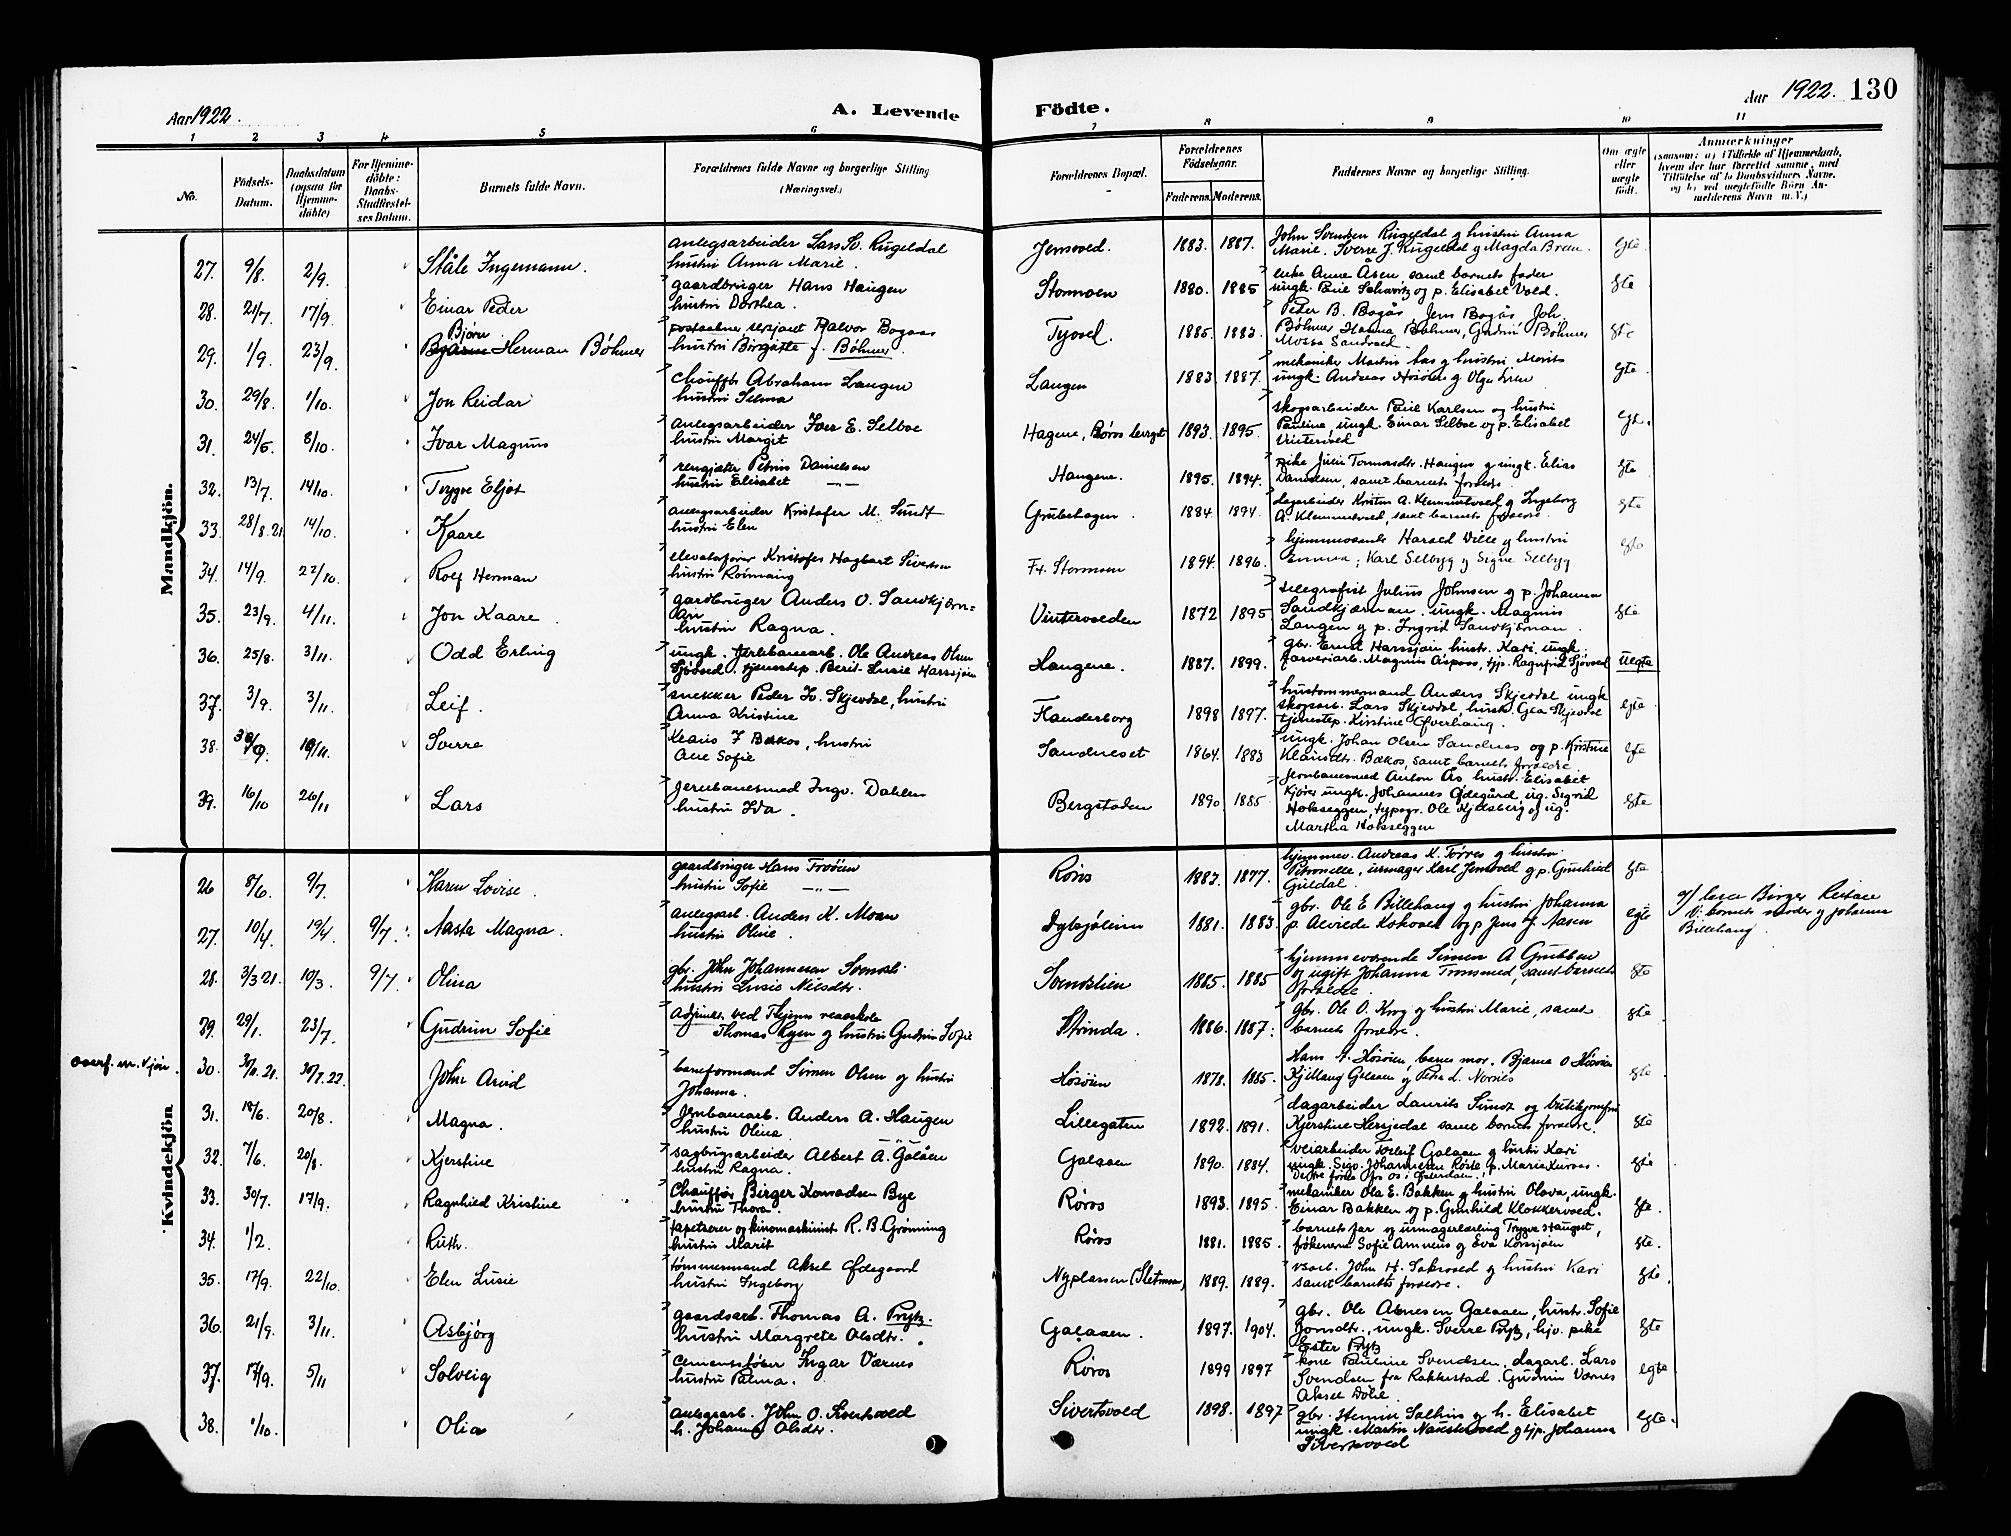 Aar 1922.
A. Levende
Födte.
Aar 1922. 130
1 2 3 4 5 6 7 8 9 10 11
No.
Födsels-
Datum.
Daabsdatum
(ogsaa for
Hjemme-
døbte)
For Hjemme-
døbte:
Daabs-
Stadfæstel-
ses Datum.
Barnets fulde Navn.
Forældrenes fulde Navne og borgerlige Stilling
(Næringsvei.)
Forældrenes Bopæl.
Forældrenes
Födselsaar.
Faderens. Moderens.
Faddernes Navne og borgerlige Stilling.
Om ægte
eller
uægte
født.
Anmærkninger
Mandkjön.
27. 9/8. 2/9. Ståle Ingemann. anlegsarbeider Lars Sv. Rugeldal
hustru Anna Marie. Jensvold. 1883. 1887. John Svendsen Rugeldal og hustru Anna
Marie. Sverre J. Rugeldal og Magda Broen. Egte
28. 21/7. 17/9. Einar Peder gaardbruger Hans Haugen
hustru Dorthea. Stormoen 1880. 1885 enke Anne Åsen samt barnets fader
ungk. Paul Schwartz og p. Elisabet Vold. Egte
29. 1/9. 23/9. Bjørn
Herman Böhmer Halvor Bogaas
hustru Birgitte f. Böhmer. Tyvold. 1885. 1883. Peder B. Bogås Jens Bogås Joh.
Böhmer Hanna Böhmer, Gudrun Böhmer
Mossa Sandvold Egte
30. 29/8. 1/10. Jon Reidar Chauffør Abraham Langen
hustru Selma Langen 1883. 1887. mekaniker Martin Aas og hustru Marit
ungk. Andreas Hosöen og Olga Lien Egte
31. 24/5. 8/10. Ivar Magnus anlegsarbeider Iver E. Selboe
hustru Margit Hagene, Röros landsogn 1893. 1895. skogsarbeider Paul Karlsen og hustru
Pauline ungk. Einar Selboe og p. Elisabet
Vintervold Egt.
32. 13/7. 14/10. Trygve Eljot rengjæter Petrus Danielsen
hustru Elisabet —"— Haugene. 1895. 1894. pike Julie Tommasdtr. Haugen og ungk. Elias
Danielsen, samt barnets foreldre Egte
33. 28/8.21. 14/10. Kaare anlegsarbeider Kristofer M. Sundt
hustru Elen Grubehagen. 1884 1894. dagarbeider Kristen A. Klemmetvold og Ingeborg
A. Klemmetvold, samt barnets foreldre. Egte
34. 14/9. 22/10. Rolf Herman elevatorfører Kristofer Hagbart Sivertsen
hustru Rönnaug Fr. Stormoen 1894. 1896. hjemmeværende Harald Ville og hustru
Emma; Karl Selbyg og Signe Selbyg Egte
35. 23/9. 4/11. Jon Kaare gaardbruger Anders O. Sandkjern-
aan
hustru Ragna. Vintervolden 1872 1895 telegrafist Julius Johnsen og p. Johanna
Sandkjernan. ungk. Magnus
Langen og p. Ingrid Sandkjernan. Egte
36. 25/8. 3/11. Odd Erling ungk. Jernbanearb. Ole Andreas Olsen
Sjövold. tjenestep. Berit Lusie Harssjøen Haugene. 1887. 1899. gbr. Ernst Harssjøen hustr. Kari. ungk.
farveriarb. Magnus Aspaas, tjp. Ragnfrid Sjövold Uegte
37. 3/9. 3/11. Leif. snekker Peder L. Skjevdal, hustru
Anna Kristine Flanderborg 1898 1897. hustømmermand Anders Skjevdal ungk
skogsarb. Lars Skjevdal, hustr. Gea Skjevdal
tjenestep. Kirstine Överhaug. Egte
38. 30/9. 19/11. Sverre Klaus J Bakos, hustru
Ane Sofie Sandneset 1864. 1883 ungk. Johan Olsen Sandnes og p. Kirstine
Klausdtr. Bakos, samt barnets foreldre. Egte
39. 16/10 26/11 Lars jernbanemand Ingv. Dahlen
hustru Ida. Bergstaden 1890 1885 Jernbanemand Anton Ås hustr. Elisabet
Kjörer ungk. Johannes Ödegård, ug. Sigrid
Hokseggen, typogr. Ole Kjelsberg og ug.
Martha Hokseggen Egte
Kvindekjön
26 8/6. 9/7. Karen Lovise. gaardbruger Hans Froöien
hustru Sofie —"— Röros 1883. 1877. hjemmev. Andreas K. Torres og hustru
Petronelle, urmager Karl Jensvold og p. Gunhild
Guldal. Egte
27. 10/4. 19/4. 9/7. Aasta Magna. anlegsarb. Anders K. Moan
hustru Oline. Dybsjölien 1881. 1883. gbr. Ole E Billehaug og hustru Johanna
p. Alvilde Kokvoll og p Jens J. Aasen Egte a/ lærer Birger Reitan
V: barnets moder og Johanna
Billehaug.
28. 3/3 21. 10/3. 9/7. Olina gbr. John Johannesen Svendsli
hustru Lusie Nilsdtr. Svendslien 1885. 1885 hjemmeværende Simen A Grubben
og ugift Johanna Tronsmed, samt barnets
foreldre. Egte
29. 29/1. 23/7. Gudrun Sofie Adjunkt ved Thjems realskole
Thomas Lyen og hustru Gudrun Sofie Strinda. 1886. 1887. gbr. Ole O. Krog og hustru Marie, samt
barnets foreldre. Egte
overf. m. kjön. 30. 30/11.21. 30/7.22. John Arvid baneformand Simen Olsen og hustru
Johanna. Hosöien 1878. 1885. Hans A. Hosöien, barnets mor. Bjarne O Hosöien
Kjellaug Galaaen og Petra L. Norsies Egte
31. 18/6. 20/8. Magna. Jernbanearb. Anders A. Haugen
hustru Olina —"— Lillegaten 1892. 1891. dagarbeider Laurits Simos og butikjomfru
Kjerstine Hersjedal samt barnets foreldre. Egte
32. 7/6. 20/8. Kjerstine sagbrugsarbeider Albert A. Galåen
hustru Ragna. Galaaen 1890. 1884. veiarbeider Torleif Galaaen og hustru Kari
ungk. Sigv. Johannesen Röste p. Maria Kurvas. Egte
33. 30/7. 17/9. Ragnhild Kristine Chauffør Birger Konradsen Bye
hustru Thora. Röros 1893. 1895. mekaniker Ola E. Bakken og hustru Olava, ungk.
Einar Bakken og p. Gunhild Klokkervold. Egte.
34. 1/2. Ruth. tapetserer og kinomaskinist R. B. Grönning
hustru Marit Röros 1881. 1885. barnets far og urmagerlærling Trygve Hauget,
frökenerne Sofie Amneus og Eva Korssjøen Egte.
35. 17/9. 22/10. Elen Lusie tømmermand Aksel Ödegaard
hustru Ingeborg Nyplassen (Sletmoen) 1889. 1889. vsarb. John H. Sakrvold og hustru Kari
samt barnets foreldre. Egte
36. 21/9. 3/11. Asbjörg gaardsarb. Thomas A. Prytz.
hustru Margrete Olsdtr. Galaaen. 1897. 1904. gbr. Ole Abnesen Galaaen, hustr. Sofie
Jonsdtr., ungk. Sverre Prytz, hjv. pike
Ester Prytz Egte
37. 17/9. 5/11 Solveig cementstöber Ingar Værnes
hustru Palma. Röros 1899 1897 kone Pauline Svendsen, dagarb. Lars
Svendsen fra Rakkestad. Gudrun Værnes
Aksel Dölie. Egte
38. 1/10. Olia anlegsarb. John O. Sivertsvold
h. Johanna Olsdtr. Sivertsvold 1898. 1897 gbr. Henrik Solhus og h. Elisabet
ungk. Martin Nakstervold og tjp. Johanna
Sivertsvold Egte.